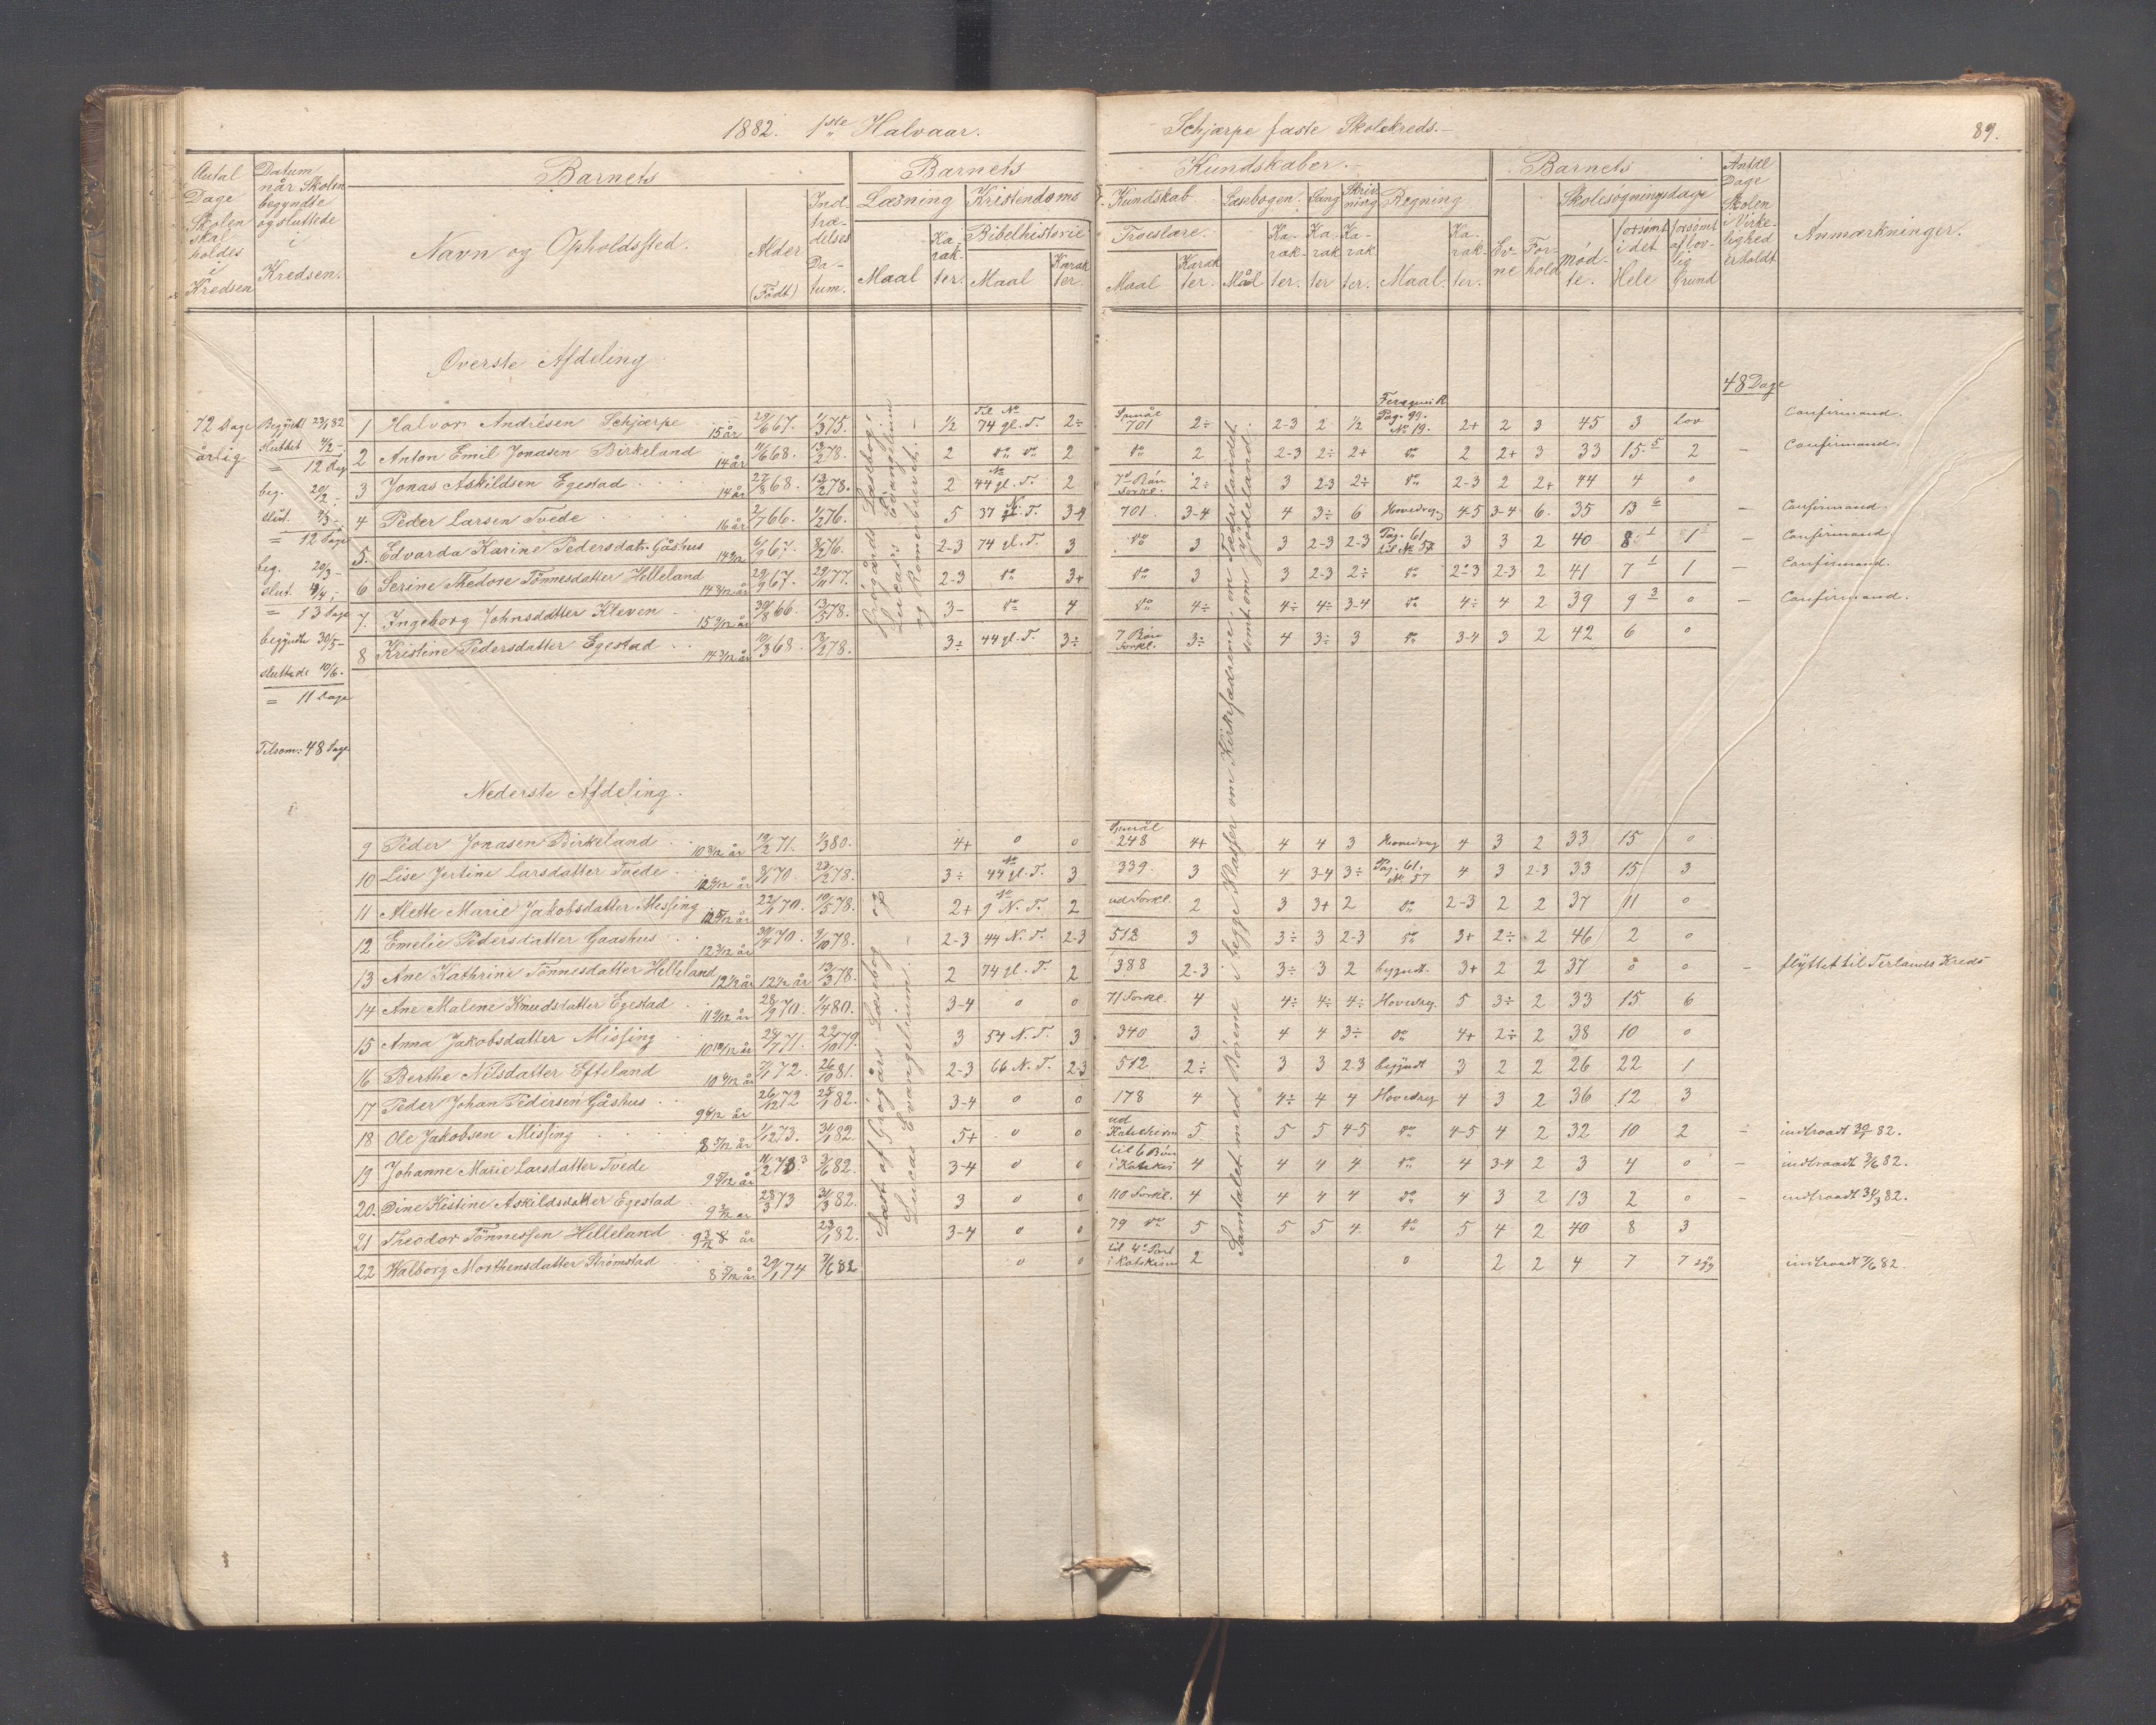 1882. 1ste Halvaar.
Schjærpe faste Skolekreds.
89.
Antal Dage Skolen skal holdes i Kredsen
Datum når Skolen begyndte og sluttede i Kredsen.
Barnets
Navn og Opholdssted.
Alder (Født)
Indtrædelses Datum.
Barnets
Kundskaber.
Læsning
Maal
Karakter.
Kristendoms Kundskab
Bibelhistorie
Maal
Karakter.
Troeslære.
Maal
Karakter.
Læsebogen.
Mål
Karakter.
Sang
Karakter
Skrivning
Karakter.
Regning
Maal.
Karakter.
Barnets
Evne
Forhold
Skolesøgningsdage
mødte.
forsømt i det Hele
forsømt af lovlig Grund
Antal Dage Skolen i Virkelighed er holdt
Anmærkninger.
Øverste Afdeling
48 Dage
72 Dage årlig
Begyndt 23/1 82
Sluttet 4/2 –
= 12 Dag
beg. 20/2 –
slut. 4/3 –
= 12 Dage
beg. 20/3 –
slut. 4/4 –
= 13 Dage
begyndte 30/5 –
sluttede 10/6.
= 11 Dage
Tilsam: 48 Dage
Prøgårds Læsebog; Lucas's Evangelium og Romerbrevet. –
Samtalet med Børnene i begge Klasser om Kirkefædrene; om Fædrelandet samt om Jødeland.
1 Halvor Andrésen Schjærpe 15 år 29/6 67. 1/3 75. 1/2 Til No 74 gl. T. 2÷ Spmål 701 2÷ 2-3 2 1/2 Pag. 99. No 19. 2+ 2 3 45 3 lov Confirmand.
2 Anton Emil Jonasen Birkeland 14 år 11/6 68. 13/2 78. 2 do do 2 do 2 2-3 2÷ 2+ do 2 2+ 3 33 15 5 2 – Confirmand.
3 Jonas Askildsen Egestad 14 år 27/8 68. 13/2 78. 2 No 44 gl. T. 2 7de Bøn Forkl. 2÷ 3 2-3 2÷ do 2-3 2 2+ 44 4 0
4 Peder Larsen Tvede 16 år 2/7 66. 1/2 76. 5 37 N. T. 3-4 701. 3-4 4 3÷ 6 Hovedreg. 4-5 3-4 6. 35 13 6 – Confirmand.
5. Edvarda Karine Pedersdatr. Gåshus 6/9 67. 8/2 76. 2-3 74 gl. T. 3 do 3 3 2-3 2-3 Pag. 61 til No 57 3 3 2 40 8 1 1 – Confirmand.
6 Serine Thedore Tönnesdatter Helleland 29/9 67. 29/11 77. 2-3 do 3+ do 3 3 2-3 2÷ do 2-3 2-3 2 41 7 1 1 – Confirmand.
7. Ingeborg Johnsdatter Kleven 15 9/12 år 30/8 66. 13/5 78. 3- do 4 do 4÷ 4÷ 4÷ 3-4 do 4÷ 4 2 39 9 3 0 – Confirmand.
8 Kristine Pedersdatter Egestad 14 3/12 år 10/3 68. 13/2 78. 3÷ 44 gl. T. 3÷ 7 Bøn Forkl. 3÷ 4 3÷ 3 do 3-4 3 2 42 6 0
Nederste Afdeling.
Læst af Prøgårds Læsebog og Lucas Evangelium. –
9 Peder Jonasen Birkeland 10 3/12 år 19/2 71. 1/3 80. 4+ 0 0 Spmål 248 4+ 4 4 3 Hovedreg 4 3 2 33 15 0
10 Lise Jertine Larsdatter Tvede 8/1 70. 23/2 78. 3÷ No 44 gl. T. 3 339. 3 4 3-4 3÷ Pag. 61. No 57 4 3 2-3 33 15 3
11 Mette Marie Jakobsdatter Missing 22/1 70. 10/5 78. 2+ No 9 N. T. 2 ud Forkl. 2 3 3+ 2 do 2-3 2 2 37 11 0
12 Emelie Pedersdatter Gaashus 12 2/12 år 30/4 70. 9/10 78. 2-3 44 N. T. 2-3 512 3 3÷ 3 2-3 do 3+ 2÷ 2 46 2 0
13 Ane Kathrine Tönnesdatter Helleland 12 1/2 år 12 1/2 år 13/3 78. 2 74 gl. T. 2 388 2-3 3÷ 3 2 begyndt. 3+ 2 2 37 0 0 – flyttet til Terlands Kreds
14 Ane Malene Knudsdatter Egestad 11 9/12 år 28/9 70. 1/4 80. 3-4 0 0 71 Forkl. 4 4÷ 4÷ 4÷ Hovedreg. 5 3÷ 2 33 15 6
15 Anna Jakobsdatter Missing 10 10/12 år 24/7 71. 29/10 79. 3 54 N. T. 3 340 3 4 4 3÷ do 4+ 2÷ 2 38 10 0
16 Berthe Nilsdatter Efteland 7/1 72. 26/10 81. 2-3 66 N. T. 2-3 512 2÷ 3 3 2-3 begyndt 3 2 2 26 22 1
17 Peder Johan Pedersen Gåshus 9 6/12 år 26/12 72 25/1 82. 3-4 0 0 178 4 4÷ 4 4 Hovedreg 4 3 2 36 12 3
18 Ole Jakobsen Missing 8 5/12 år 1/12 73. 31/1 82. 5+ 0 0 ud Katechism 5 5 5 4-5 do 4-5 4 2 32 10 2 – indtraadt 30/1 82.
19 Johanne Marie Larsdatter Tvede 11/2 73 3/6 82. 3-4 0 0 til 6 Bøn i Katekis 4 4 4 4 do 4 3-4 2 3 4 0 – indtraadt 3/6 82.
20. Dine Kistine Askildsdatter Egestad 9 3/12 år 28/3 73 31/3 82. 3 0 0 110 Forkl. 4 4 4 4 do 4 3 2 13 2 0 – indtraadt 31/3 82.
21 Theodor Tönnessen Helleland år 23/1 82. 3-4 0 0 79 do 5 5 5 4. do 5 4 2 40 8 3
22 Walborg Morthensdatter Strømstad 8 5/12 år 29/1 74 7/6 82 0 0 til 4de Part i Katekism 2 0 2 2 4 7 7 indtraadt 7/6 82.